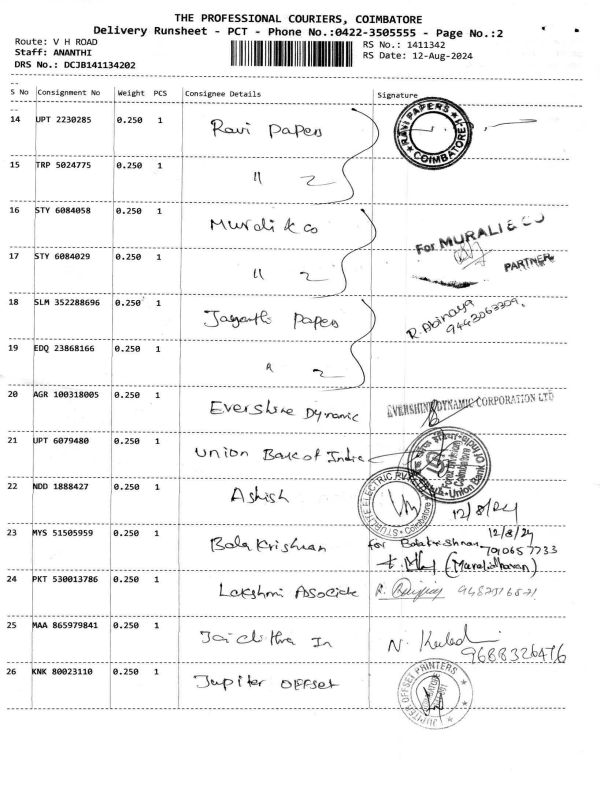 THE PROFESSIONAL COURIERS, COIMBATORE
Delivery Runsheet - PCT - Phone No.:0422-3505555 - Page No.:2
Route: V H ROAD RS No.: 1411342
Staff: ANANTHI RS Date: 12-Aug-2024
DRS No.: DCJB141134202
S No Consignment No Weight PCS Consignee Details Signature
14 UPT 2230285 0.250 1 Ravi Papers
RAVI PAPERS COIMBATORE
15 TRP 5024775 0.250 1 " 2
16 STY 6084058 0.250 1 Murali & co
For MURALI & CO
17 STY 6084029 0.250 1 " 2
PARTNER
18 SLM 352288696 0.250 1 Jayanthi Papers
R. Abinaya
9443063309
19 EDQ 23868166 0.250 1 " 2
20 AGR 100318005 0.250 1 Evershine Dynamic
EVERSHINE DYNAMIC CORPORATION LTD
21 UPT 6079480 0.250 1 Union Bank of India
Coimbatore
Union Bank
22 NDD 1888427 0.250 1 Ashish
ELECTRIC
Coimbatore
12/8/24
23 MYS 51505959 0.250 1 Bala Krishnan
12/8/24
for Balakrishnan
7010657733
(Muralidharan)
24 PKT 530013786 0.250 1 Lakshmi Associate
25 MAA 865979841 0.250 1
9688326476
26 KNK 80023110 0.250 1 Jupiter OFFset
JUPITER OFFSET PRINTERS